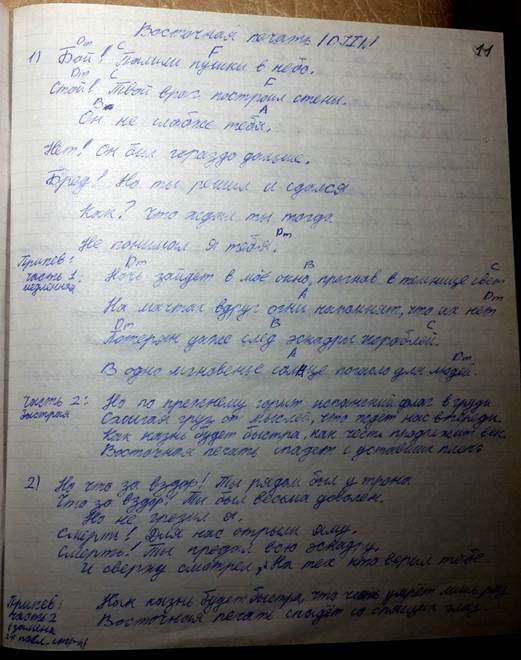 Восточная печать /DJIN/ 11
Dm C F
1) Бой! Палили пушки в небо.
Dm C F
Стой! Твой враг построил стены.
Bm A
Он не слабже тебя.
Нет! Он был гораздо дальше.
Бред! Но ты решил и сдался
Как? Что ждал ты тогда
Dm
Не понимал я тебя.
Припев:
часть 1:
медленная
Dm B C
Ночь зайдет в моё окно, прогнав в темнице свет
A Dm
На мачтах вдруг огни напомнят, что их нет
Dm B C
Потерян даже след эскадры кораблей.
A Dm
В одно мгновенье солнце погасло для людей.
Часть 2:
быстрая
Но по прежнему горит испанский флаг в груди
Сжигая груз от мыслей, что ждёт нас впереди.
Как казнь будет быстра, как честь продолжит век.
Восточная печать спадет с уставших
2) Но что за вздор! Ты рядом был у трона
Что за вздор! Ты был весьма доволен.
Но не грезил я.
Смерть! Для нас открыли яму.
Смерть! Ты предал всю эскадру,
И сверху смотрел, На тех кто верил тебе
Припев:
часть 2
(замена
2х посл. строк)
Как казнь будет быстра, что честь умрёт лишь раз
Восточная печать спадёт со спящих глаз.